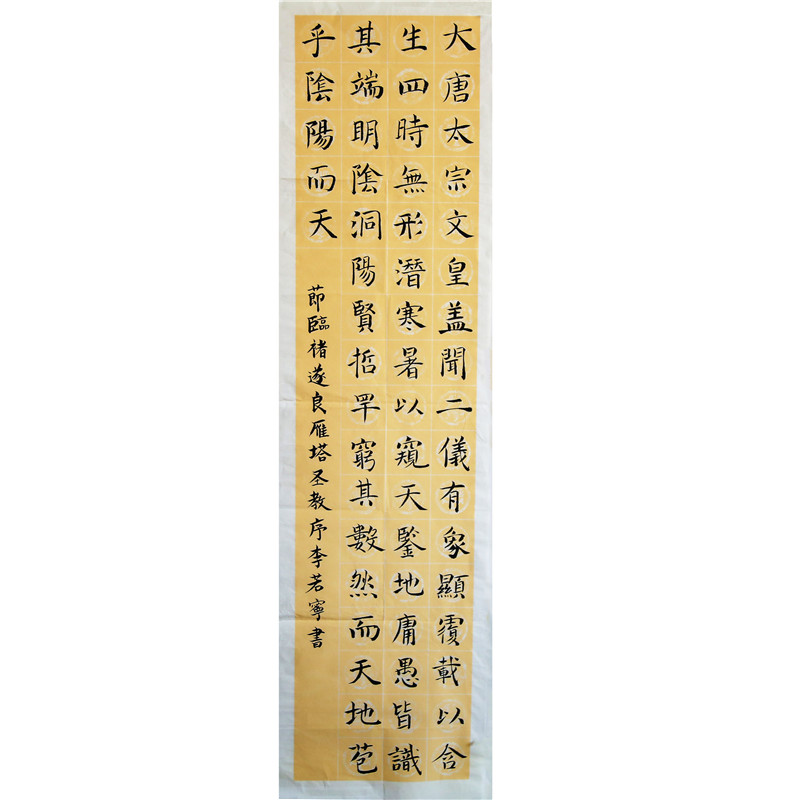 大唐太宗文皇盖聞二儀有象顯覆載以含
生四時無形潛寒暑以窺天鑒地庸愚皆識
其端明陰洞陽賢哲罕窮其數然而天地苞
乎陰陽而天
節臨褚遂良雁塔圣教序李若寧書